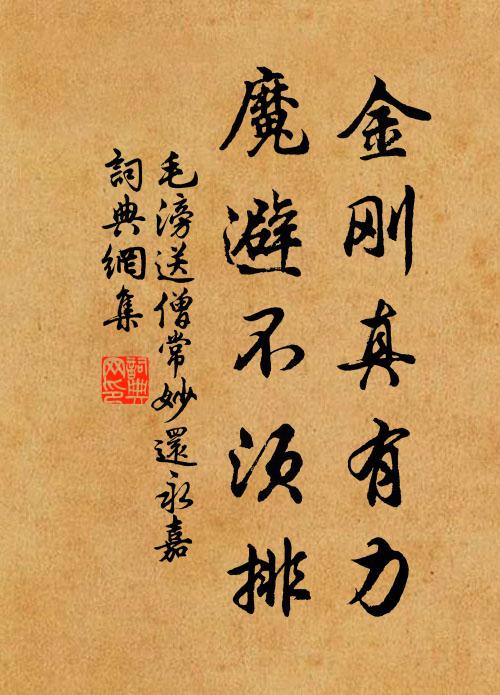 金刚真有力
魔避不须排
毛滂送僧常妙還永嘉
詞典網集
詞典
网印